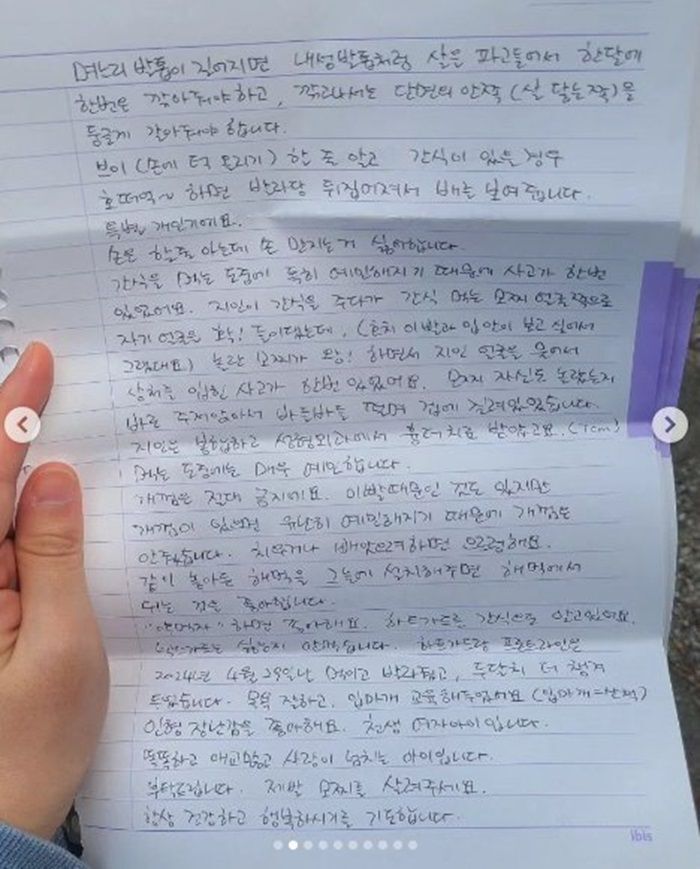 며느리발톱이 길어지면 내성발톱처럼 살을 파고들어서 한달에
한번은 깎아줘야하고, 깎고나서는 단면의 안쪽(살 닿는쪽)을
둥글게 갈아줘야 합니다.
브이(손에 턱 올리기) 할 줄 알고 간식이 있을 경우
호떡~ 하면 발라당 뒤집어져서 배를 보여줍니다.
특별 개인기에요.
손은 할줄 아는데 손 만지는거 싫어합니다.
간식을 먹는 도중에 특히 예민해지기 때문에 사고가 한번
있었어요. 지인이 간식을 주다가 간식 먹는 모찌 얼굴쪽으로
자기 얼굴을 확! 들이댔는데, (흔치 이빨과 입안이 보고 싶어서
그랬대요) 놀란 모찌가 왕! 하면서 지인 얼굴을 물어서
상처를 입힌 사고가 한번 있었어요. 모찌 자신도 놀랐는지
바로 주저앉아서 바들바들 떨며 겁에 질려있었습니다.
지인은 봉합하고 성형외과에서 흉터치료 받았고요. (1cm)
먹는 도중에는 매우 예민합니다.
개껌은 절대 금지에요. 이빨때문인 것도 있지만
개껌이 있으면 유난히 예민해지기 때문에 개껌은
안줬습니다. 치우거나 뺏으려하면 으르렁해요.
같이 놓아둔 해먹을 그늘에 설치해주면 해먹에서
쉬는 것을 좋아합니다.
"약먹자" 하면 좋아해요. 하트가드를 간식으로 알고있어요.
넥스가드는 싫은지 안먹습니다. 하트가드랑 프론트라인은
2024년 4월 29일날 먹이고 발라줬고, 두단치 더 챙겨
두었습니다. 목욕 잘하고, 입마개 교육해두었어요 (입마개=산책)
인형 장난감을 좋아해요. 천생 여자아이입니다.
똑똑하고 애교많고 사랑이 넘치는 아이입니다.
부탁드립니다. 제발 모찌를 살려주세요.
항상 건강하고 행복하시기를 기도합니다.
ibis